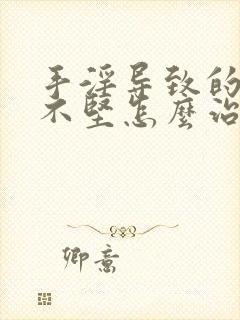 手淫导致的
不坚怎麽治
卿意